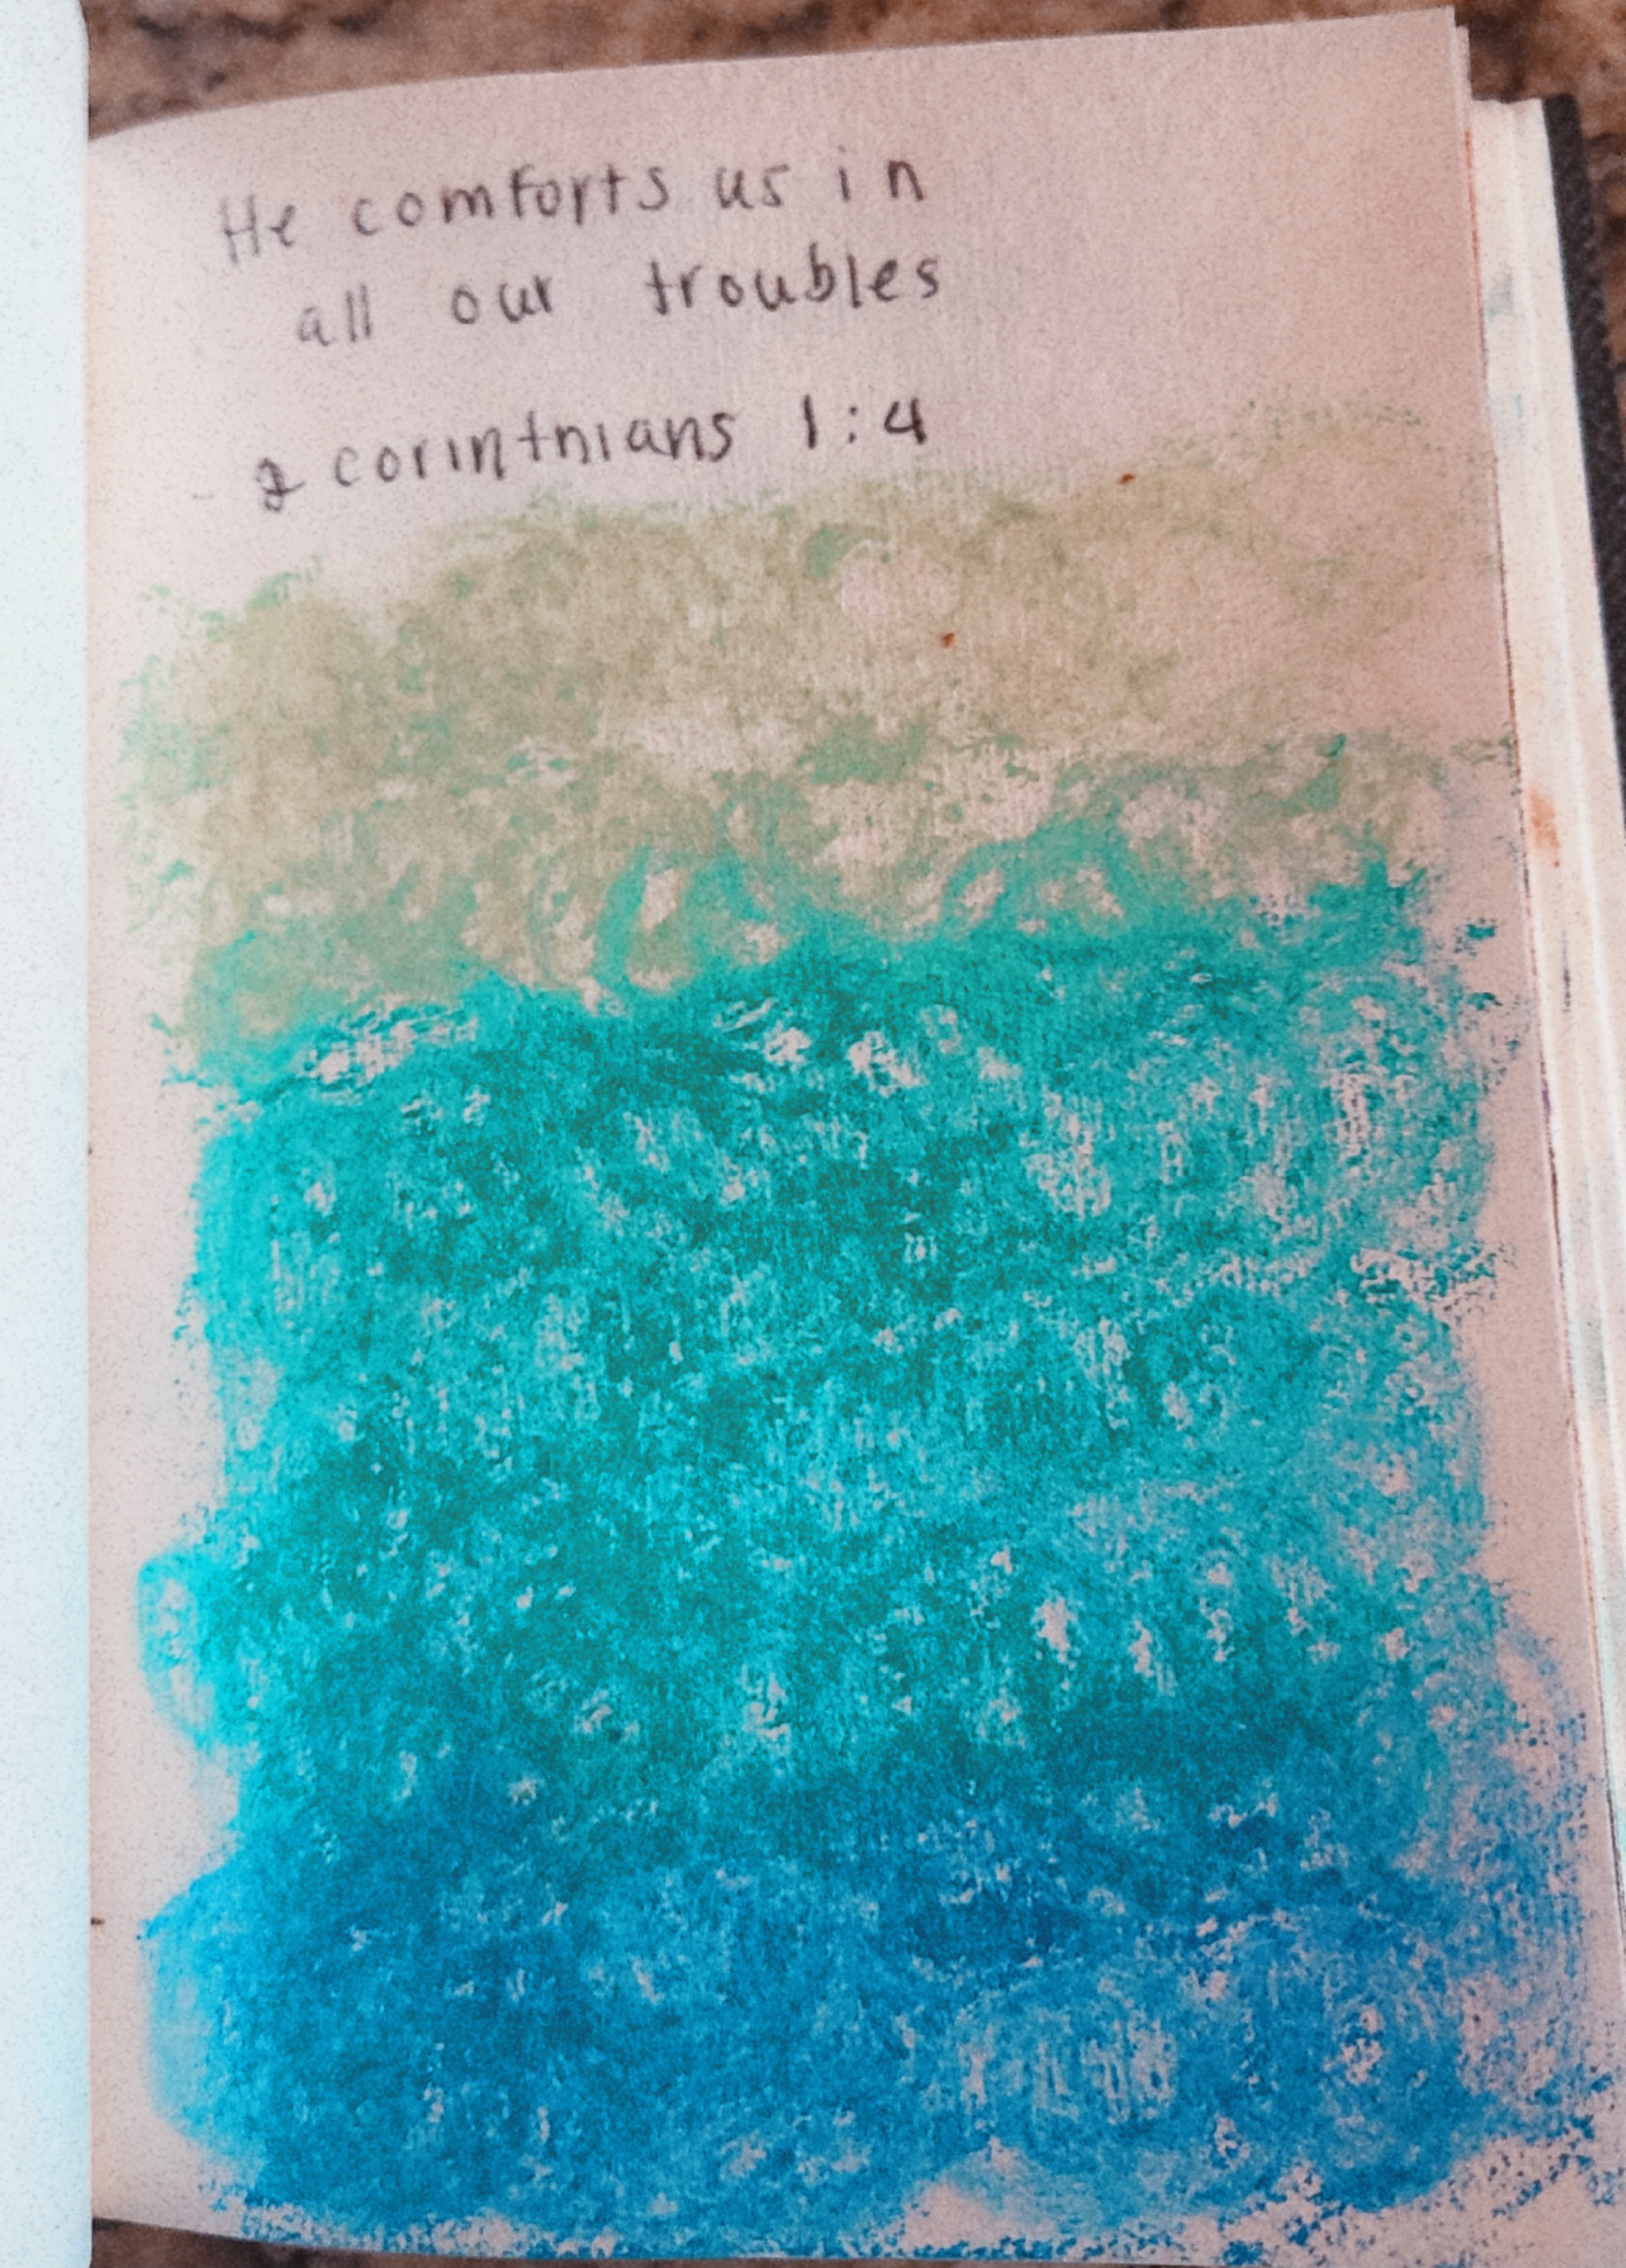 He comforts us in
all our troubles
- 2 corinthians 1:4